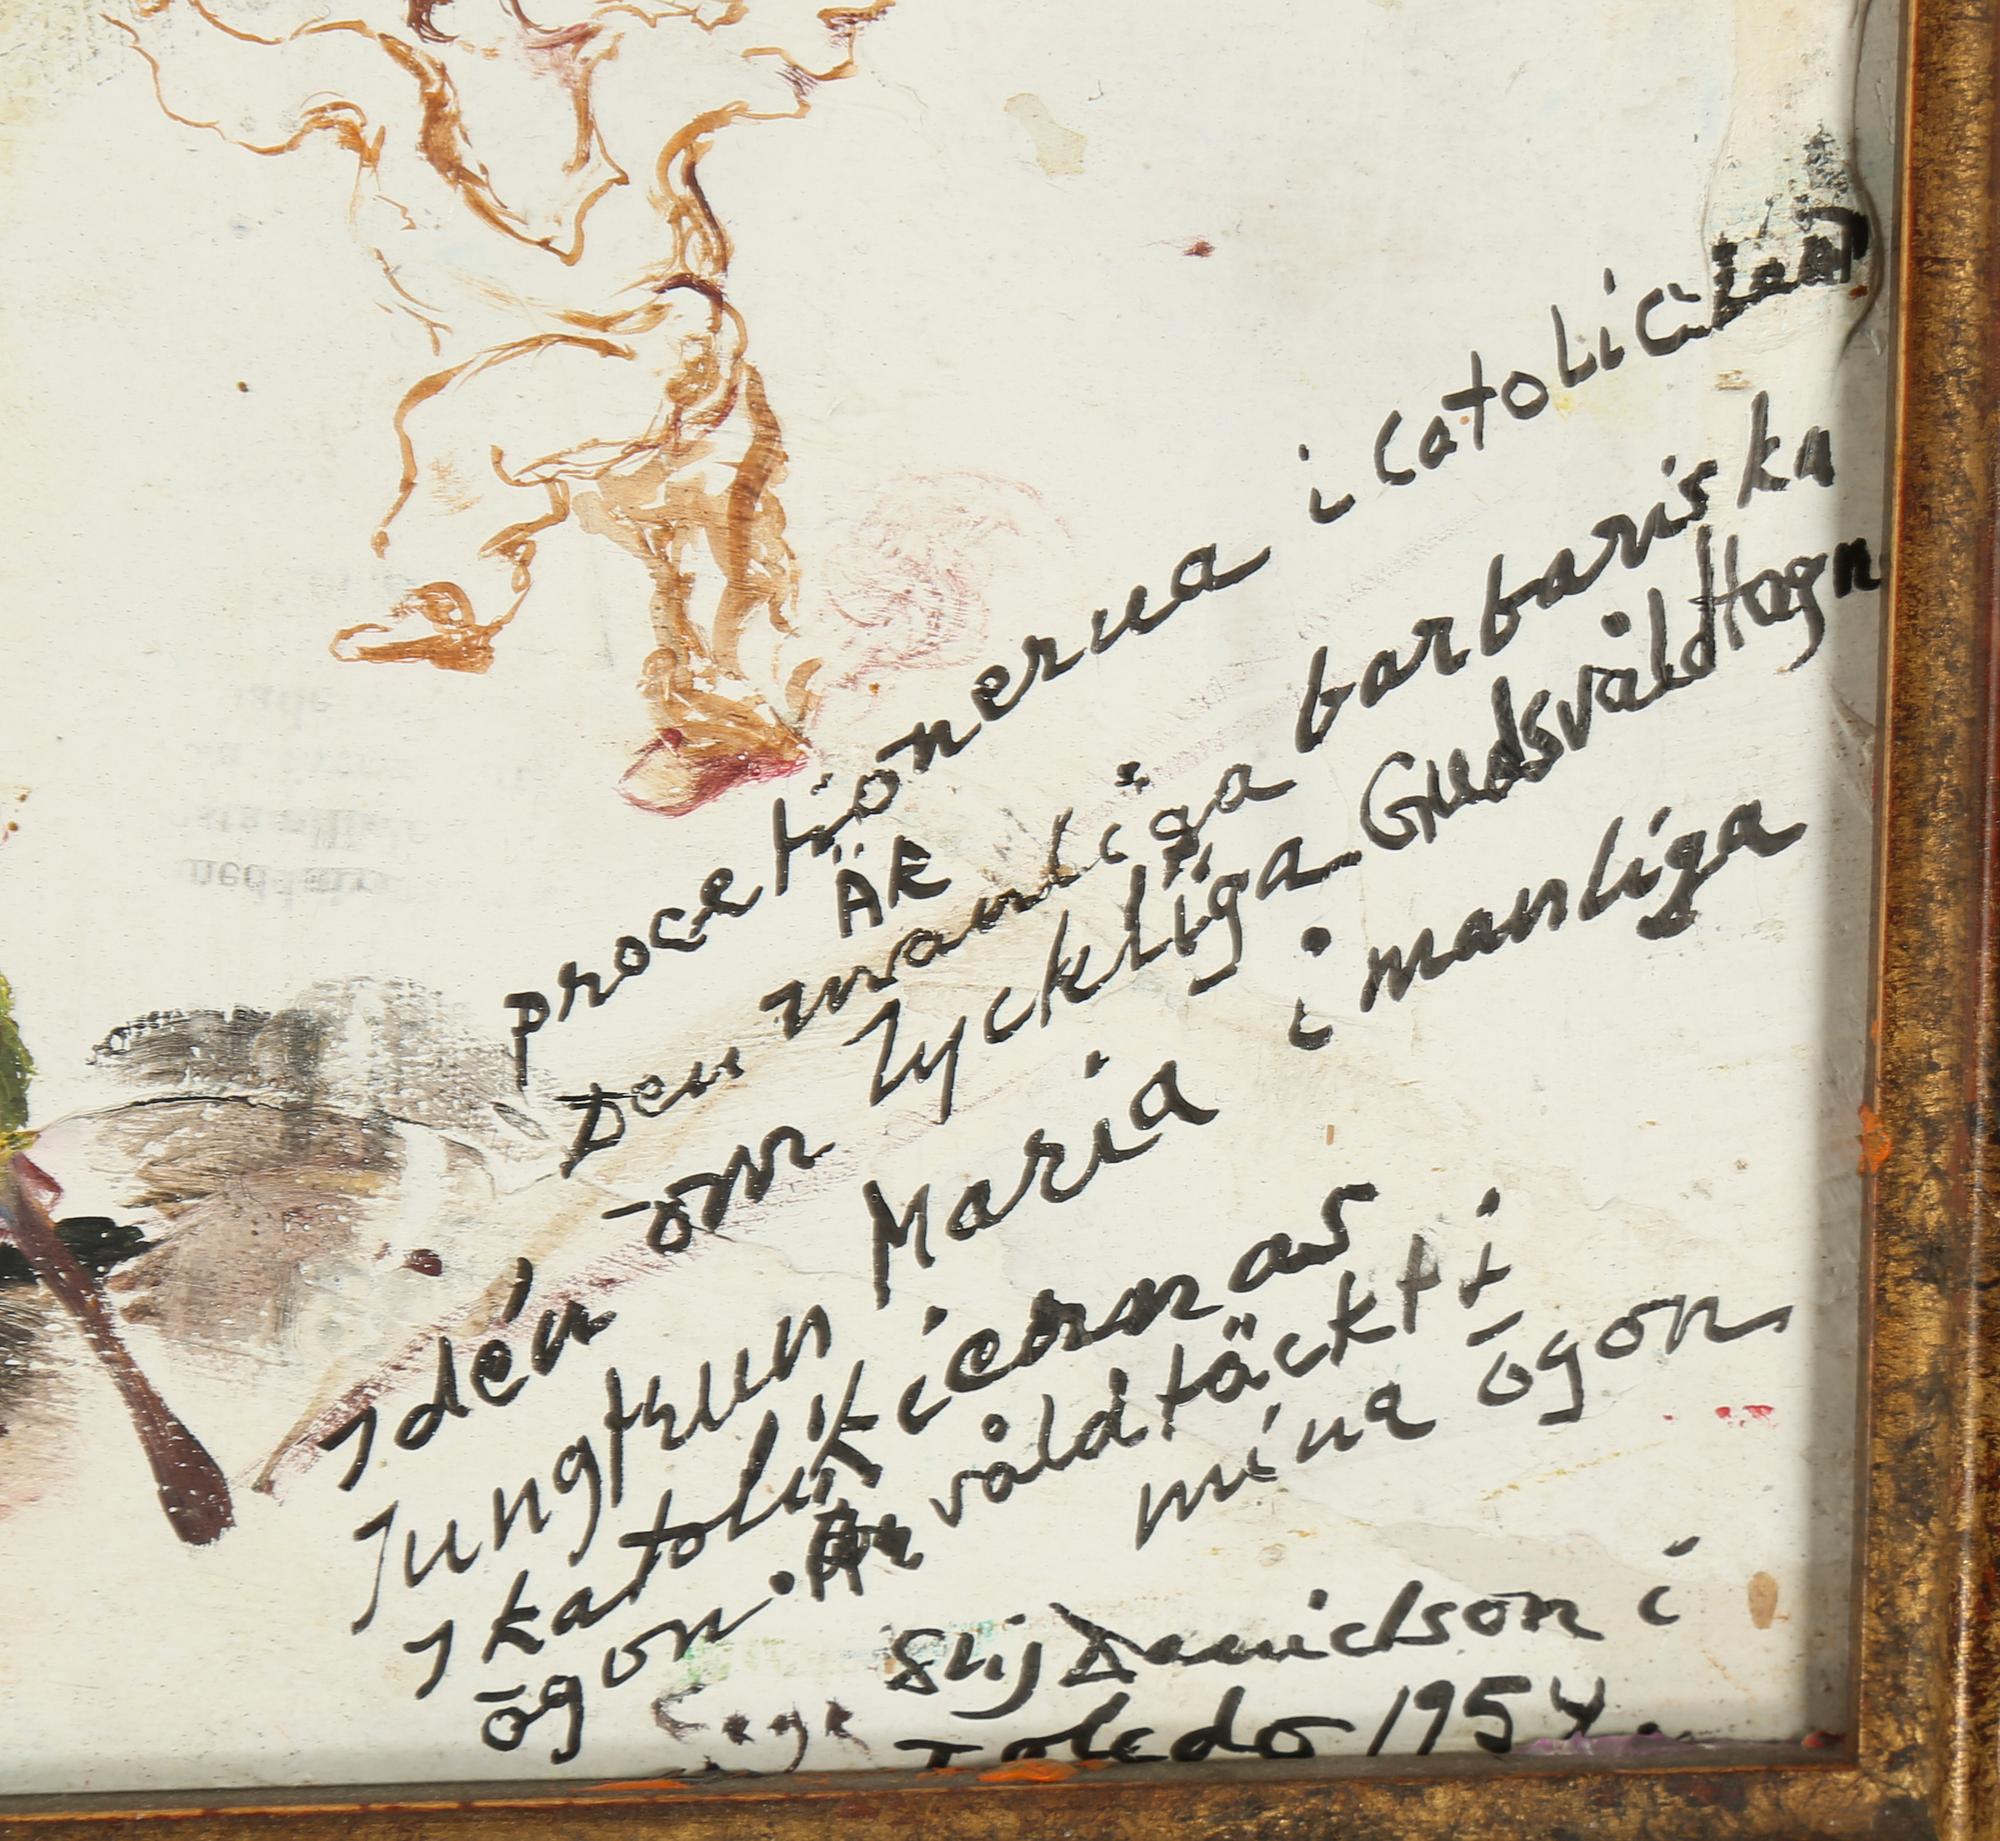 procetionerna i catolicism
ÄR
Den manliga barbariska
idén om lyckliga Gudsvåldtagn
Jungfrun Maria i manliga
i katolikiernas
ögon. Är våldtäckt i
mina ögon
Cege
Stij Danielson i
Toledo 1954.